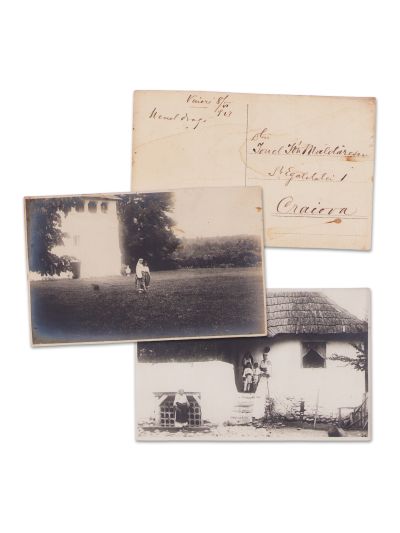 Vineri 8/VI
1923
Nenel drag,
Dlui
Ionel Maldărescu
Str Egalităței 1
Craiova